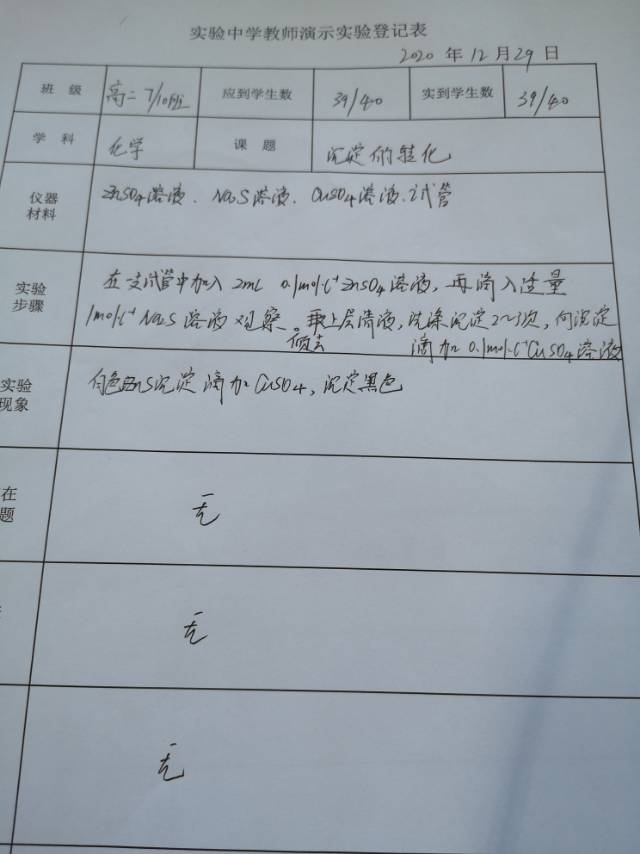 实验中学教师演示实验登记表
2020 年 12 月 29 日
班 级 高二 7/10班 应到学生数 39/40 实到学生数 39/40
学 科 化学 课 题 沉淀的转化
仪器
材料
ZnSO4溶液、Na2S溶液、CuSO4溶液、试管
实验
步骤
在一支试管中加入 2mL 0.1mol·L⁻¹ ZnSO4溶液，再滴入适量
1mol·L⁻¹ Na2S 溶液 观察。上层清液，洗涤沉淀2~3次，向沉淀
倾去 滴加 0.1mol·L⁻¹CuSO4溶液
实验
现象
白色ZnS沉淀 滴加CuSO4，沉淀黑色
在
题
无
无
无